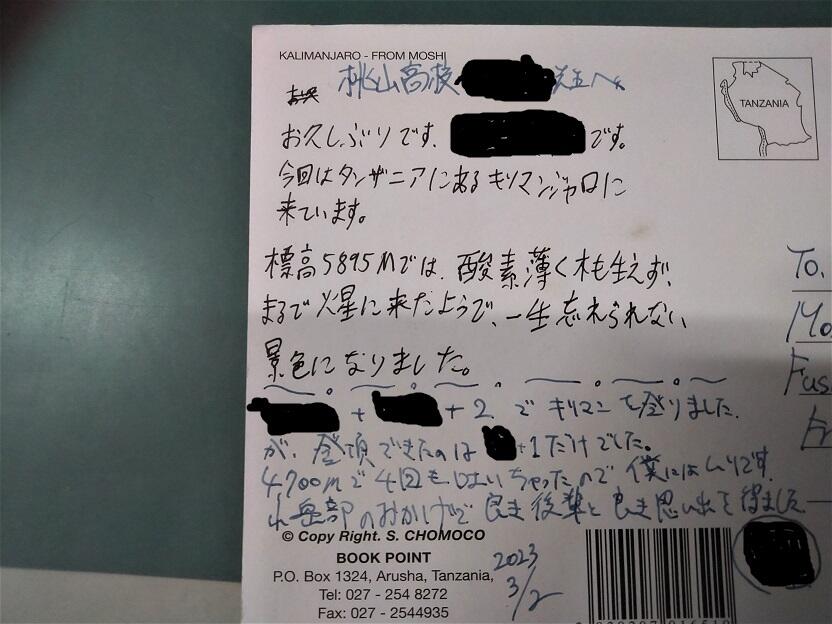 KALIMANJARO - FROM MOSHI
桃山高校 先生へ
TANZANIA
お久しぶりです、 です。
今回はタンザニアにあるキリマンジャロに
来ています。
標高5895mでは、酸素薄く木も生えず、
まるで火星に来たようで、一生忘れられない
景色になりました。
+ +2 でキリマンを登りました
が、登頂できたのは +1だけでした。
4,700mで4回もはいちゃったので僕にはムリです
山岳部のおかげで良き後輩と良き思い出を得ました
To.
© Copy Right. S. CHOMOCO
BOOK POINT
P.O. Box 1324, Arusha, Tanzania,
Tel: 027 - 254 8272
Fax: 027 - 2544935
2023
3/2